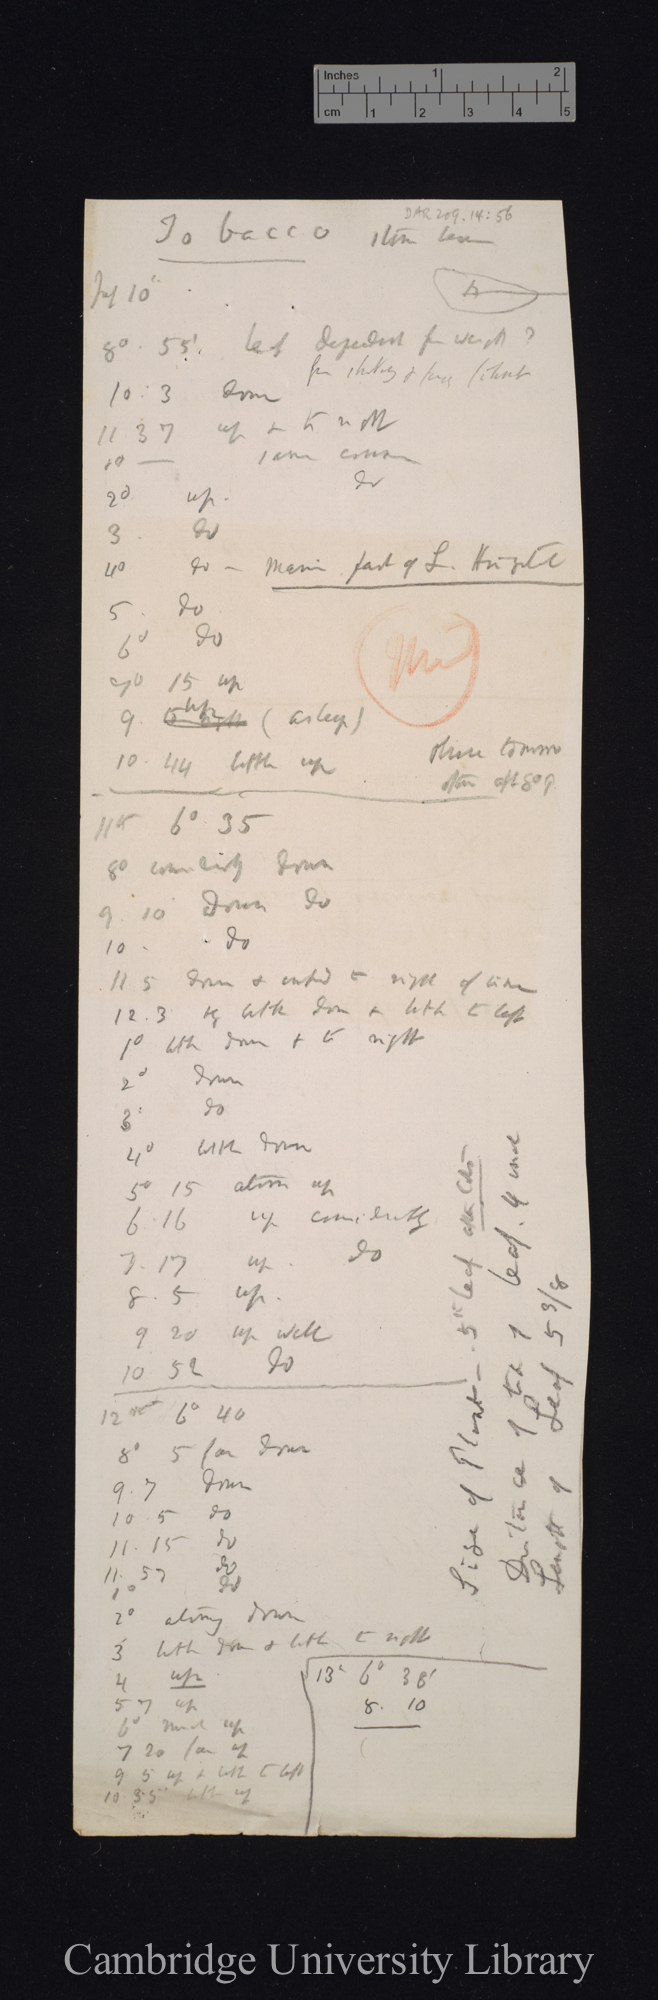 Inches 1 2
cm 1 2 3 4 5
DAR 209.14:56
Tobacco
July 10th
8° 55' leaf dependent from weight?
10. 3 down
11 37 up & to right
same course
do
2° up.
3. do
4° do – main part of
5. do
6° do
7° 15 up
9. up (asleep)
10. 44 little up
11th 6° 35
8° considerably down
9. 10 Down do
10. do
11 5 down & to right of line
12. 3 little down & little to left
1° little down & to right
2° down
3° do
4° little down
5° 15 up
6. 16 up considerably
7. 17 up. do
8. 5 up.
9 20 up well
10 52 do
12th 6° 40
8° 5 far down
9. 7 down
10. 5 do
11. 15 do
11. 57 do
1° do
2° down
3 little down & little to right
4 up
5 7 up
6° much up
7 20 far up
9 5 up & little to left
10 35 little up
13th 6° 38'
8. 10
Size of Plant – 5th leaf after
Distance of of leaf. 4 inch
Length of Leaf 5 3/8
Cambridge University Library